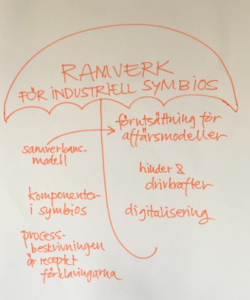 RAMVERK
FÖR INDUSTRIELL SYMBIOS
förutsättning för
affärsmodeller
samverkans
modell
hinder &
drivkrafter
komponenter
i symbios
digitalisering
process-
beskrivningen
är receptet
förklaringarna